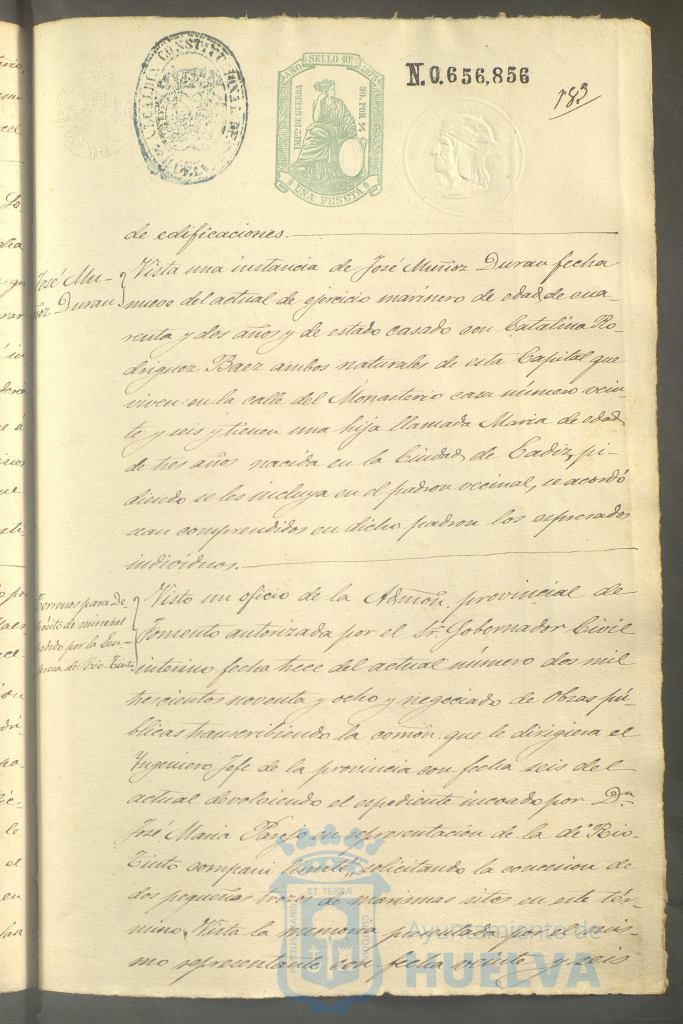 ALCALDIA CONSTITUCIONAL DE
AÑO SELLO 10º 1875
IMPTO DE GUERRA
50 POR %
UNA PESETA
N.0.656,856
183
de edificaciones.
José Mu-
ñoz Duran
Vista una instancia de José Muñoz Duran fecha
nueve del actual de ejercicio marinero de edad de cua-
renta y dos años y de estado casado con Catalina Ro-
driguez Baez ambos naturales de esta Capital que
viven en la calle del Monasterio casa número vein-
te y seis y tienen una hija llamada Maria de edad
de tres años nacida en la Ciudad de Cadiz, pi-
diendo se les incluya en el padron vecinal, se acordó
sean comprendidos en dicho padron los espresados
individuos.
Terrenos para de
pósito de minerales
pedido por la Em-
presa de Rio-Tinto
Visto un oficio de la Admón. provincial de
Fomento autorizada por el Sr. Gobernador Civil
interino fecha trece del actual número dos mil
trescientos noventa y ocho y negociado de Obras pú-
blicas transcribiendo la comón. que le dirigiera el
Ingeniero Jefe de la provincia con fecha seis del
actual devolviendo el espediente incoado por Dn.
José Maria Parejo en representacion de la de Rio-
Tinto compani limité, solicitando la concesion de
dos pequeños trozos de marismas sitos en este tér-
mino. Vista la memoria presentada por el mis-
mo representante con fecha veinte y seis
ET TERRÆ
PORTUS MARIS
CUSTODIA
Ayuntamiento de
HUELVA